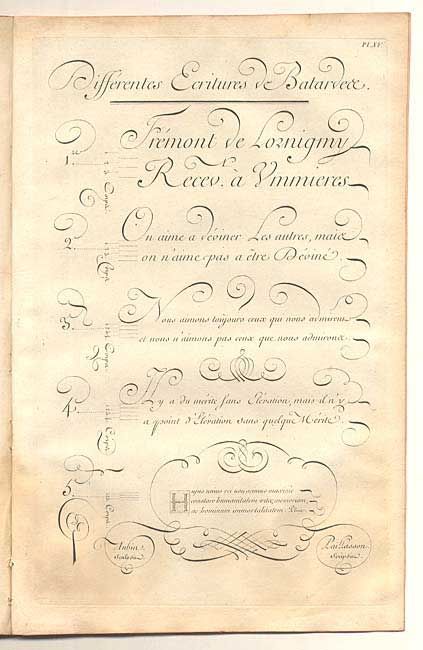 PL. XV.
Differentes Ecritures de Batardes.
1.
Trémont de Lornigmy
Recev. à Vmmieres
2.
On aime a déviner Les autres, mais
on n'aime pas a être Déviné.
3.
Nous aimons toujours ceux qui nous admirent
et nous n'aimons pas ceux que nous admirons.
4.
Il y a du mérite sans Elévation, mais il n'y
a point d'Elévation sans quelque Mérite.
5.
humanitatem vitæ
hominum immortalitatem. Plin.
Aubin
Sculpsit
Paillasson
Scripsit